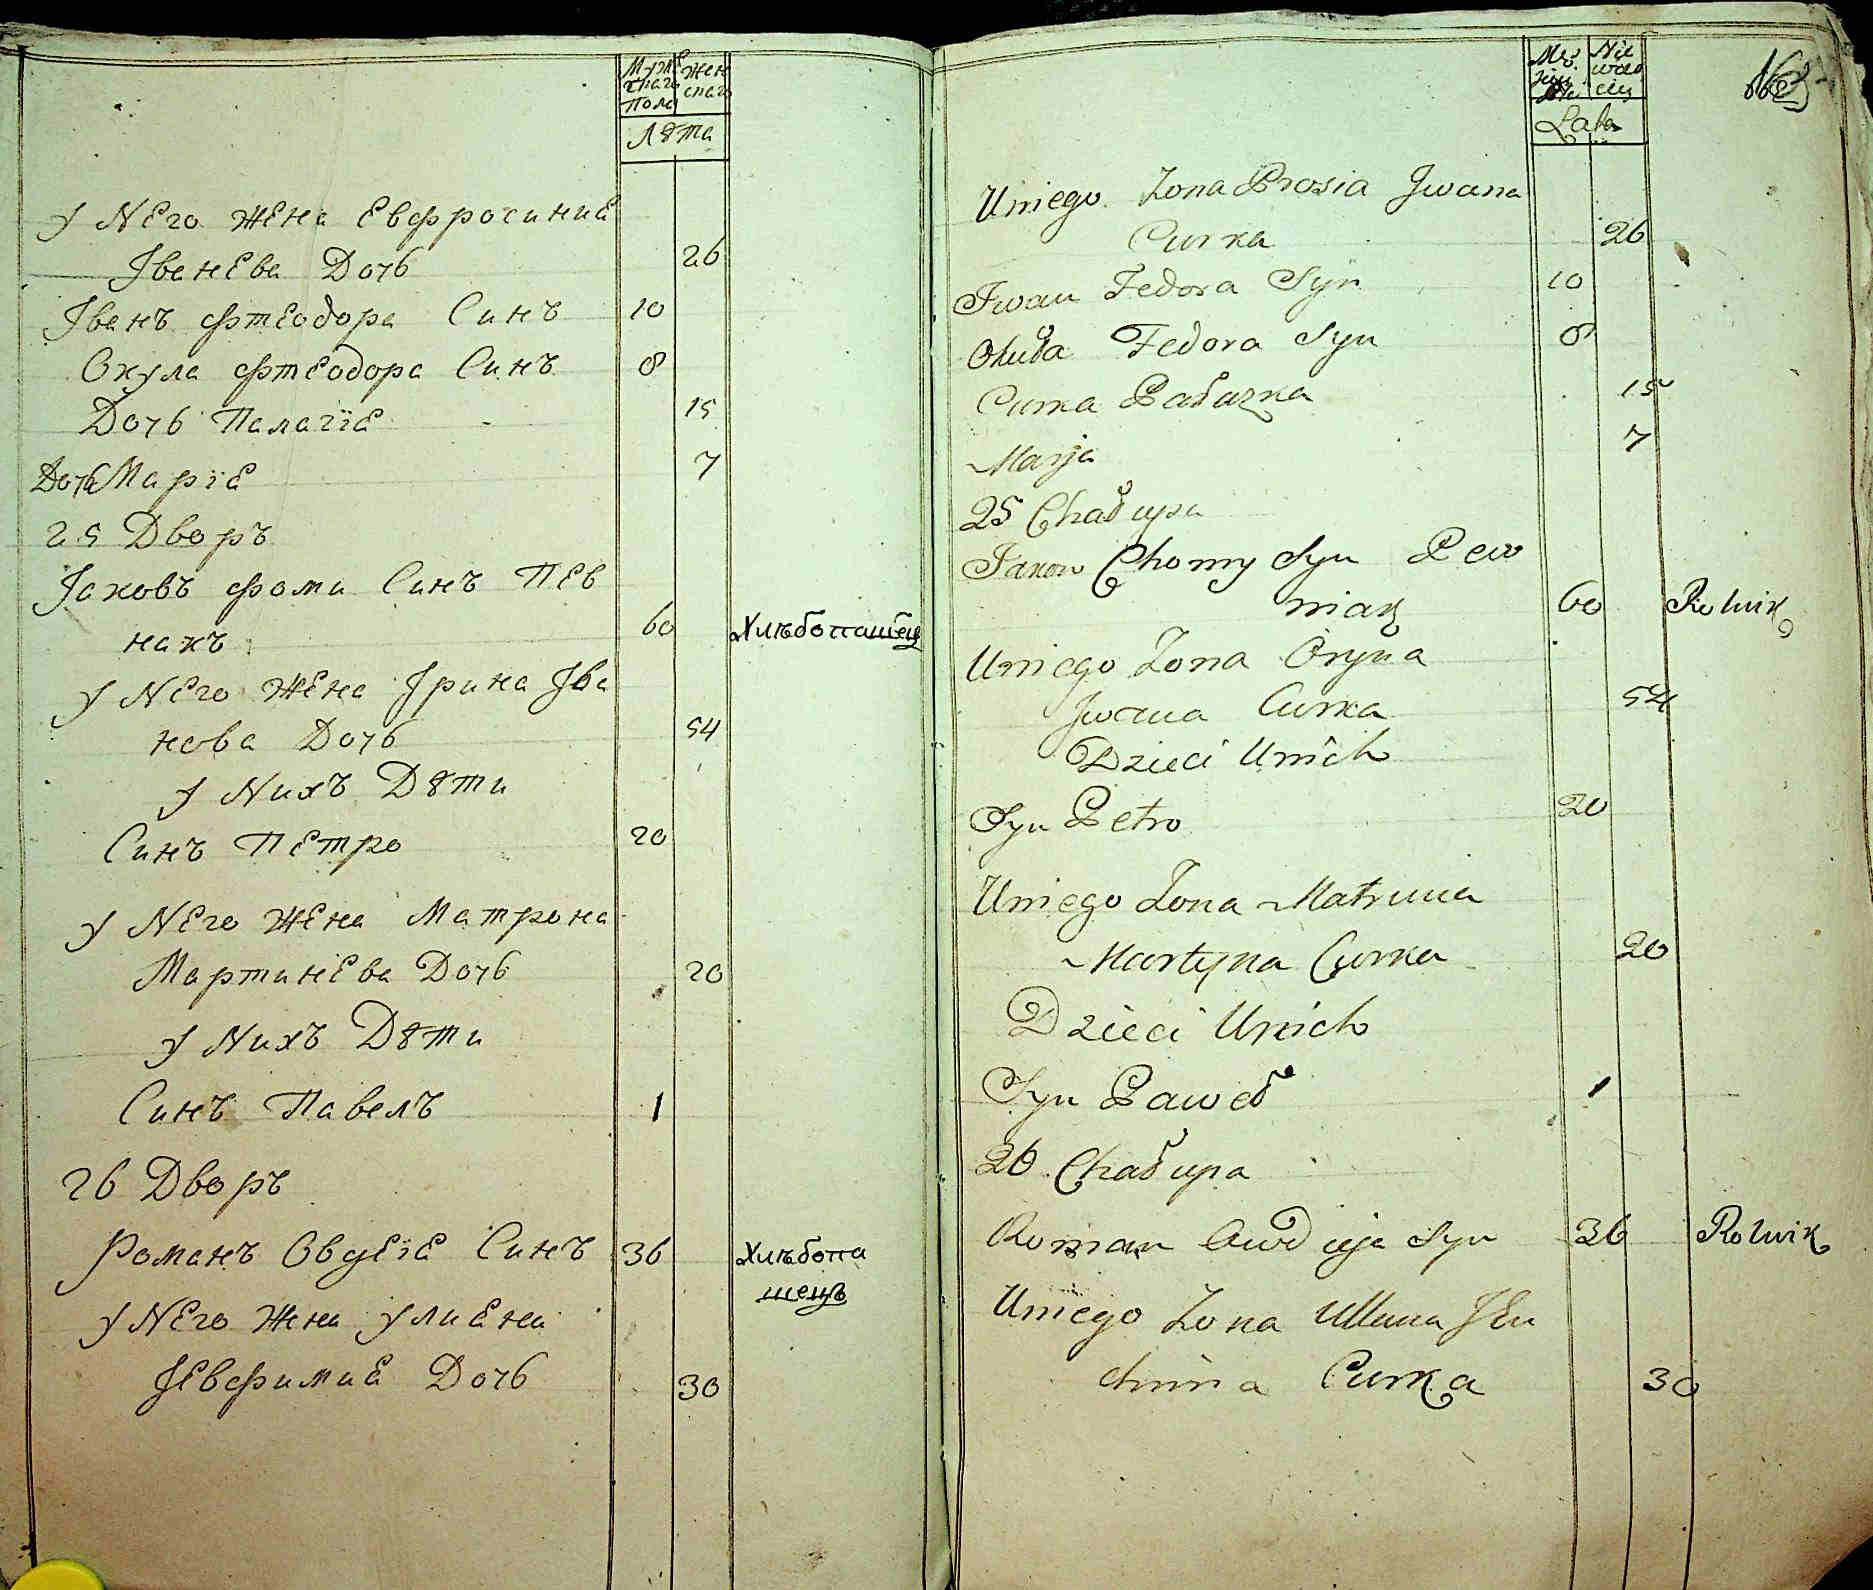 Мужескаго Пола
Женскаго
Лѣта
У Него Жена Евфросиние
Іванева Дочь 26
Іванъ Фтеодора Синъ 10
Окула Фтеодора Синъ 8
Дочь Палагїе 15
Дочь Марїе 7
25 Дворъ
Іаковъ Фоми Синъ Пев
накъ 60 Хлѣбопашець
У Него Жена Ірина Іва
нова Дочь 54
У Нихъ Дѣти
Синъ Петро 20
У Него Жена Матрона
Мартинева Дочь 20
У Нихъ Дѣти
Синъ Павелъ 1
26 Дворъ
Романъ Овдеїе Синъ 36 Хлѣбопа
шець
У Него Жена Улиена
Іевфимие Дочь 30
Lata
Uniego Zona Prosia Jwana
Curka 26
Jwan Fedora Syn 10
Okuła Fedora Syn 8
Curka Pałazka 15
Marja 7
25 Chałupa
Jakow Chomy Syn Pew
niak 60 Rolnik
Uniego Zona Oryna
Jwana Curka 54
Dzieci Unich
Syn Petro 20
Uniego Zona Matruna
Martyna Curka 20
Dzieci Unich
Syn Paweł 1
26 Chałupa
Roman Awdieja Syn 36 Rolnik
Uniego Zona Ullana Jeu
chima Curka 30